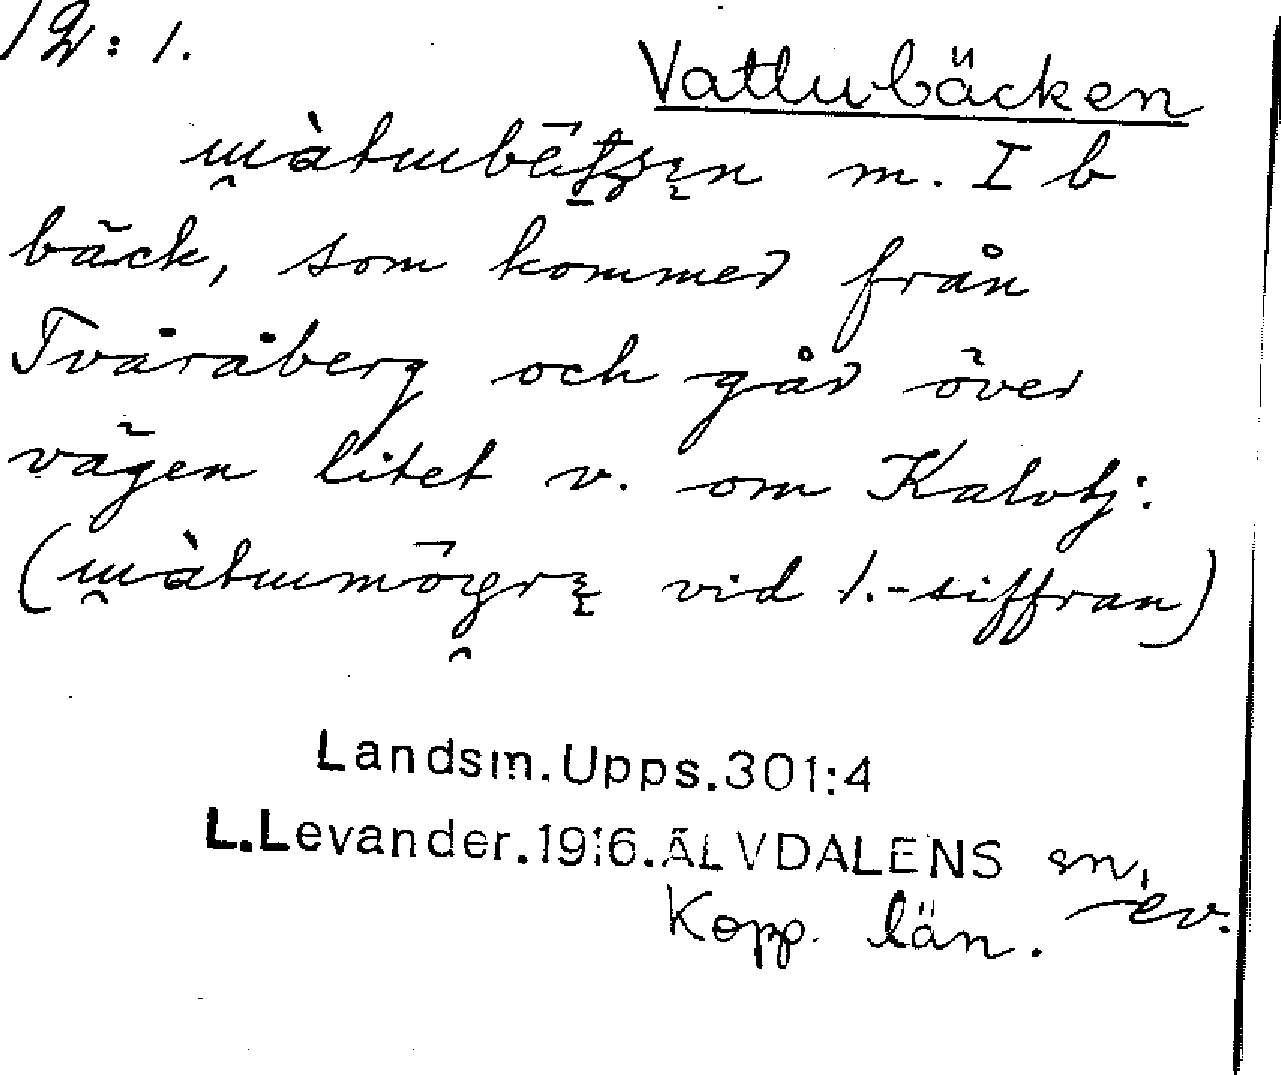 12:1.
Vattubäcken
m. I b
bäck, som kommer från
Tväråberg och går över
vägen litet v. om Kalvtj:
( vid 1.-siffran)
Landsm.Upps.301:4
L.Levander.1916.ÄLVDALENS sn,
Kopp. län.